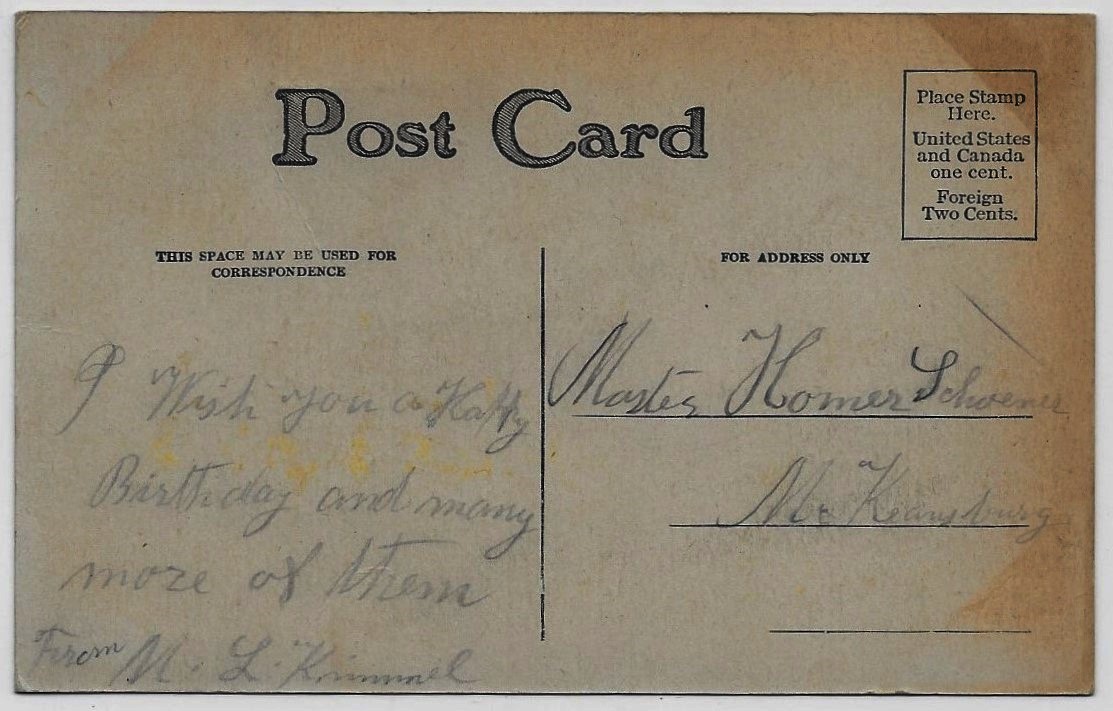 Post Card
Place Stamp
Here.
United States
and Canada
one cent.
Foreign
Two Cents.
THIS SPACE MAY BE USED FOR
CORRESPONDENCE
FOR ADDRESS ONLY
I Wish you a Happy
Birthday and many
more of them
From M. L. Kimmel
Master Homer Schoener
Mc Keansburg